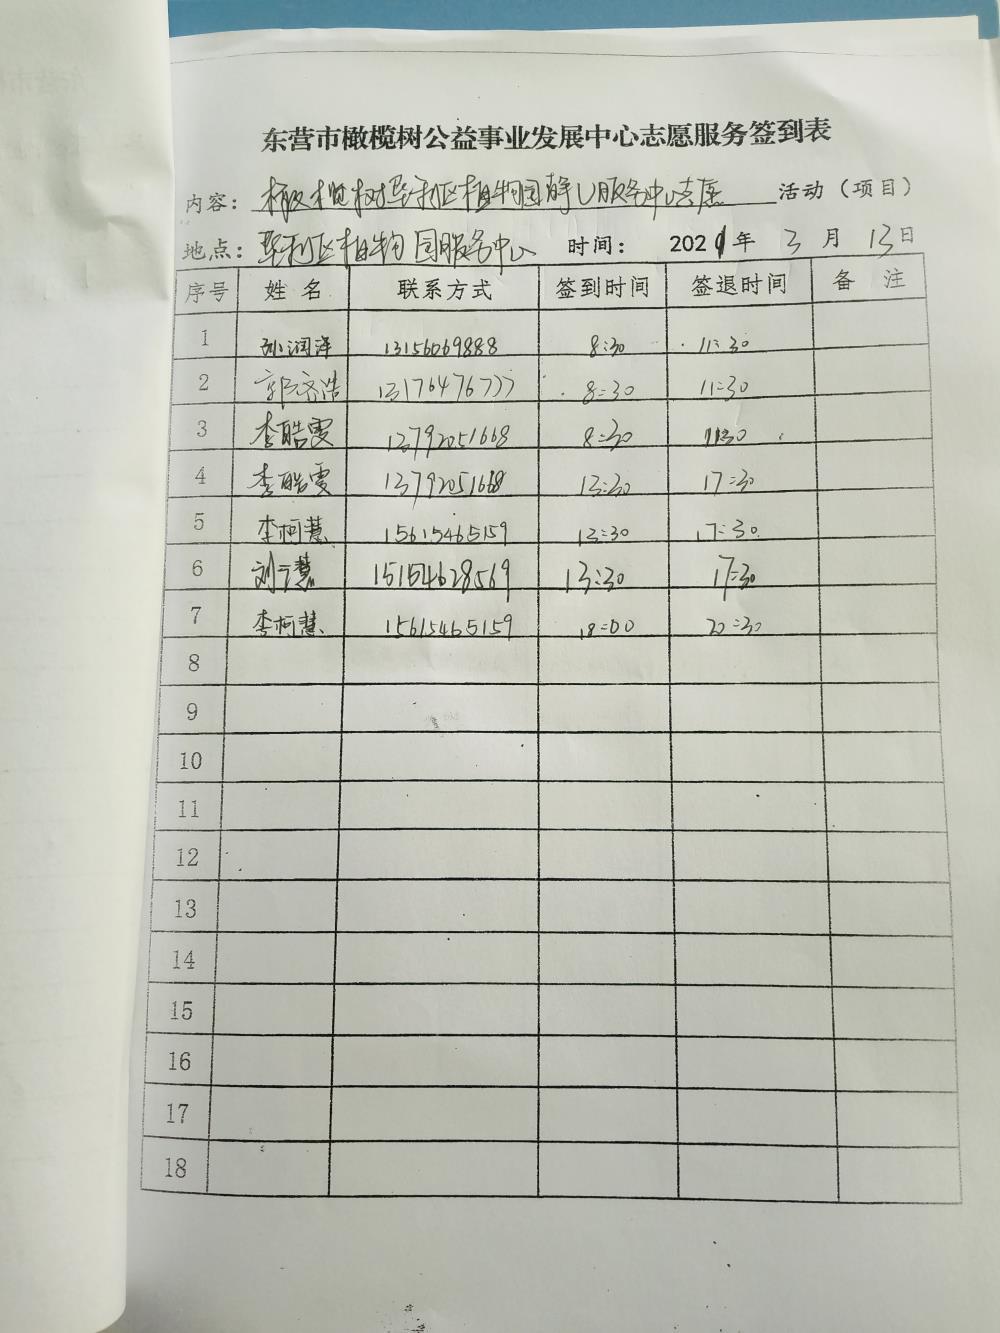 东营市橄榄树公益事业发展中心志愿服务签到表
内容：橄榄树垦利区植物园静心服务中心志愿 活动（项目）
地点：垦利区植物园服务中心 时间：2021年 3月 13日
序号 姓名 联系方式 签到时间 签退时间 备 注
1 孙润泽 13156069888 8:30 11:30
2 郭济浩 13176476777 8:30 11:30
3 李皓雯 13792051668 8:30 11:30
4 李皓雯 13792051668 13:30 17:30
5 李柯慧 15615465159 13:30 17:30
6 刘子慧 15154628569 13:30 17:30
7 李柯慧 15615465159 18:00 20:30
8
9
10
11
12
13
14
15
16
17
18